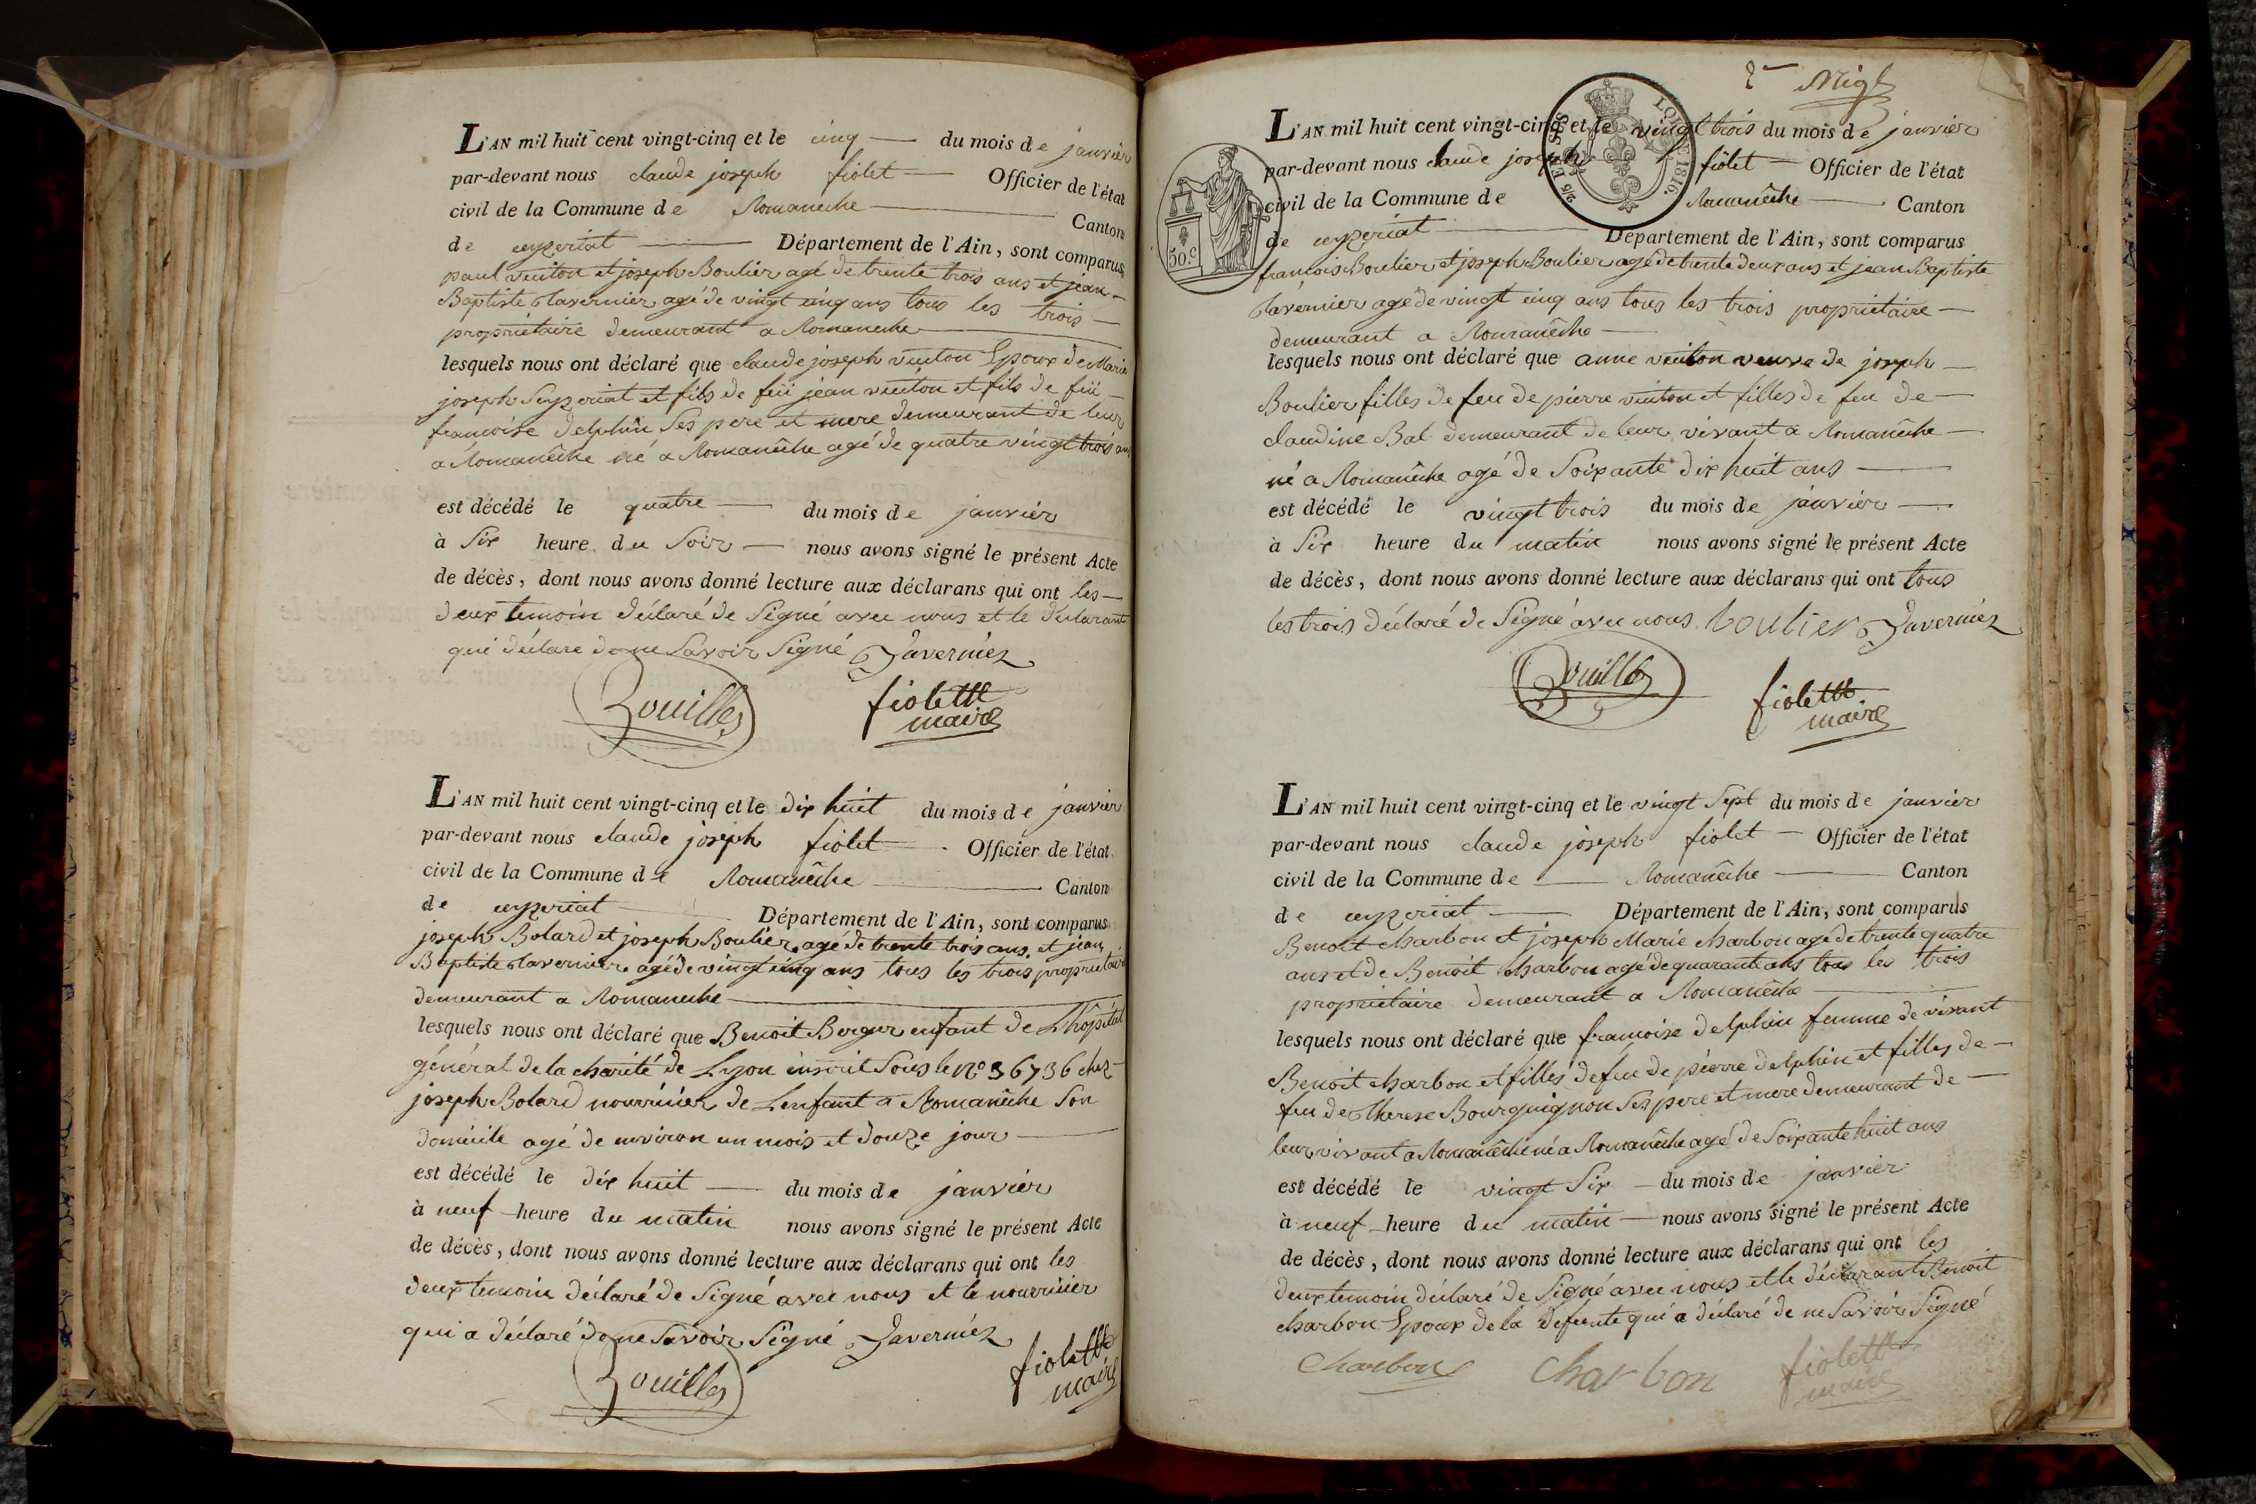 L'AN mil huit cent vingt-cinq et le cinq du mois de janvier
par-devant nous claude joseph fiolet Officier de l'état
civil de la Commune de Romanêche Canton
de ceyzeriat Département de l'Ain, sont comparus
paul vuiton et joseph Boulier agé de trente trois ans et jean
Baptiste Tavernier agé de vingt cinq ans tous les trois
propriétaire demeurant a Romaneche
lesquels nous ont déclaré que claude joseph vuiton Epoux de Marie
joseph Seyzeriat et fils de feü jean vuiton et fils de feü
francoise delphin Ses pere et mere demeurant de leur
a Romanêche né a Romanêche agé de quatre vingt trois ans
est décédé le quatre du mois de janvier
à Six heure du Soir nous avons signé le présent Acte
de décès, dont nous avons donné lecture aux déclarans qui ont les
deux temoin déclaré de Signé avec nous et le déclarant
qui déclare de ne Savoir Signé Taverniez
Bouillez fiolette
maire
L'AN mil huit cent vingt-cinq et le dix huit du mois de janvier
par-devant nous claude joseph fiolet Officier de l'état
civil de la Commune de Romanêche Canton
de ceyzeriat Département de l'Ain, sont comparus
joseph Bolard et joseph Boulier agé de trente trois ans et jean
Baptiste Tavernier agé de vingt cinq ans tous les trois propriétaire
demeurant a Romaneche
lesquels nous ont déclaré que Benoit Berger enfant de Lhôpital
général de la charité de Lyon inscrit Sous le No 36736 chez
joseph Bolard nourricier de Lenfant a Romanêche Son
domicile agé de environ un mois et douze jour
est décédé le dix huit du mois de janvier
à neuf heure du matin nous avons signé le présent Acte
de décès, dont nous avons donné lecture aux déclarans qui ont les
deux temoin déclaré de Signé avec nous et le nourricier
qui a déclaré de ne Savoir Signé Taverniez
Bouillez fiolette
maire
2me
L'AN mil huit cent vingt-cinq et le vingt trois du mois de janvier
par-devant nous claude joseph fiolet Officier de l'état
civil de la Commune de Romanêche Canton
de ceyzeriat Département de l'Ain, sont comparus
50.c
LOI DE 1816.
francois Boulier et joseph Boulier agé de trente deux ans et jean Baptiste
Tavernier agé de vingt cinq ans tous les trois propriétaire
demeurant a Romanêche
lesquels nous ont déclaré que anne vuiton veuve de joseph
Boulier filles de feu de pierre vuiton et filles de feu de
claudine Bal demeurant de leur vivant a Romanêche
né a Romanêche agé de Soixante dix huit ans
est décédé le vingt trois du mois de janvier
à Six heure du matin nous avons signé le présent Acte
de décès, dont nous avons donné lecture aux déclarans qui ont tous
les trois déclaré de Signé avec nous boulier Taverniez
Bouillez fiolette
maire
L'AN mil huit cent vingt-cinq et le vingt Sept du mois de janvier
par-devant nous claude joseph fiolet Officier de l'état
civil de la Commune de Romanêche Canton
de ceyzeriat Département de l'Ain, sont comparus
Benoit charbon et joseph Marie charbon agé de trente quatre
ans et de Benoit charbon agé de quarante ans tous les trois
propriétaire demeurant a Romanêche
lesquels nous ont déclaré que francoise delphin femme de vivant
Benoit charbon et filles de feu de pierre delphin et filles de
feu de Therese Bourguignon Ses pere et mere demeurant de
leur vivant a Romanêche né a Romanêche agé de Soixante huit ans
est décédé le vingt Six du mois de janvier
à neuf heure du matin nous avons signé le présent Acte
de décès, dont nous avons donné lecture aux déclarans qui ont les
deux temoin déclaré de Signé avec nous et le déclarant Benoit
charbon Epoux de la defunte qui a déclaré de ne Savoir Signé
Charbon Charbon fiolette
maire